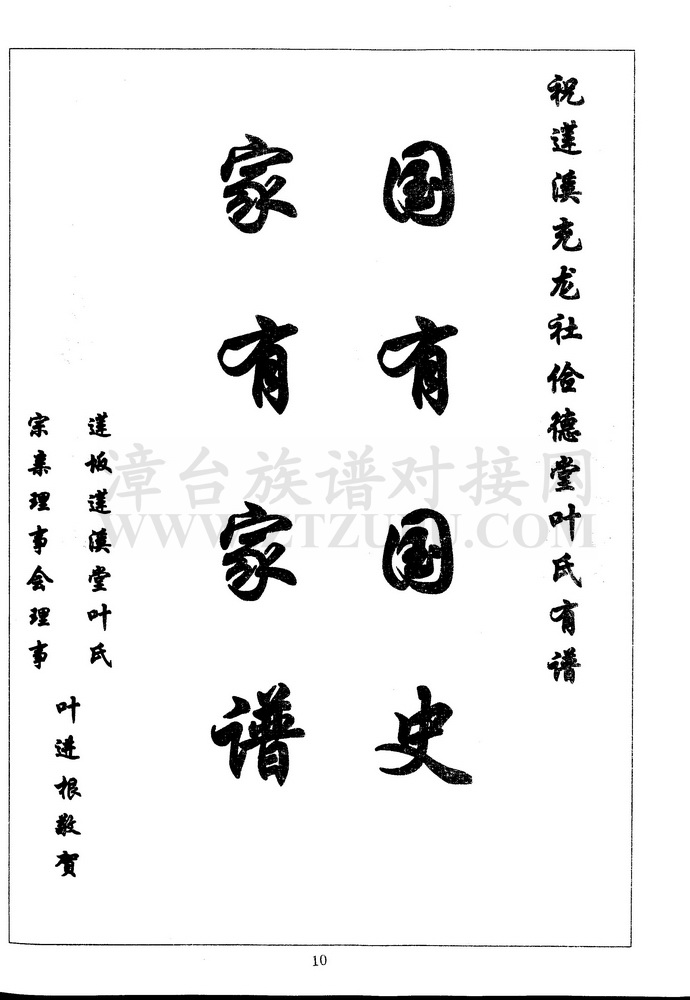 祝莲溪充龙社俭德堂叶氏有谱
国有国史
家有家谱
莲坂莲溪堂叶氏
宗亲理事会理事
叶进根敬贺
漳台族谱对接网
WWW.ZTZUPU.COM
10